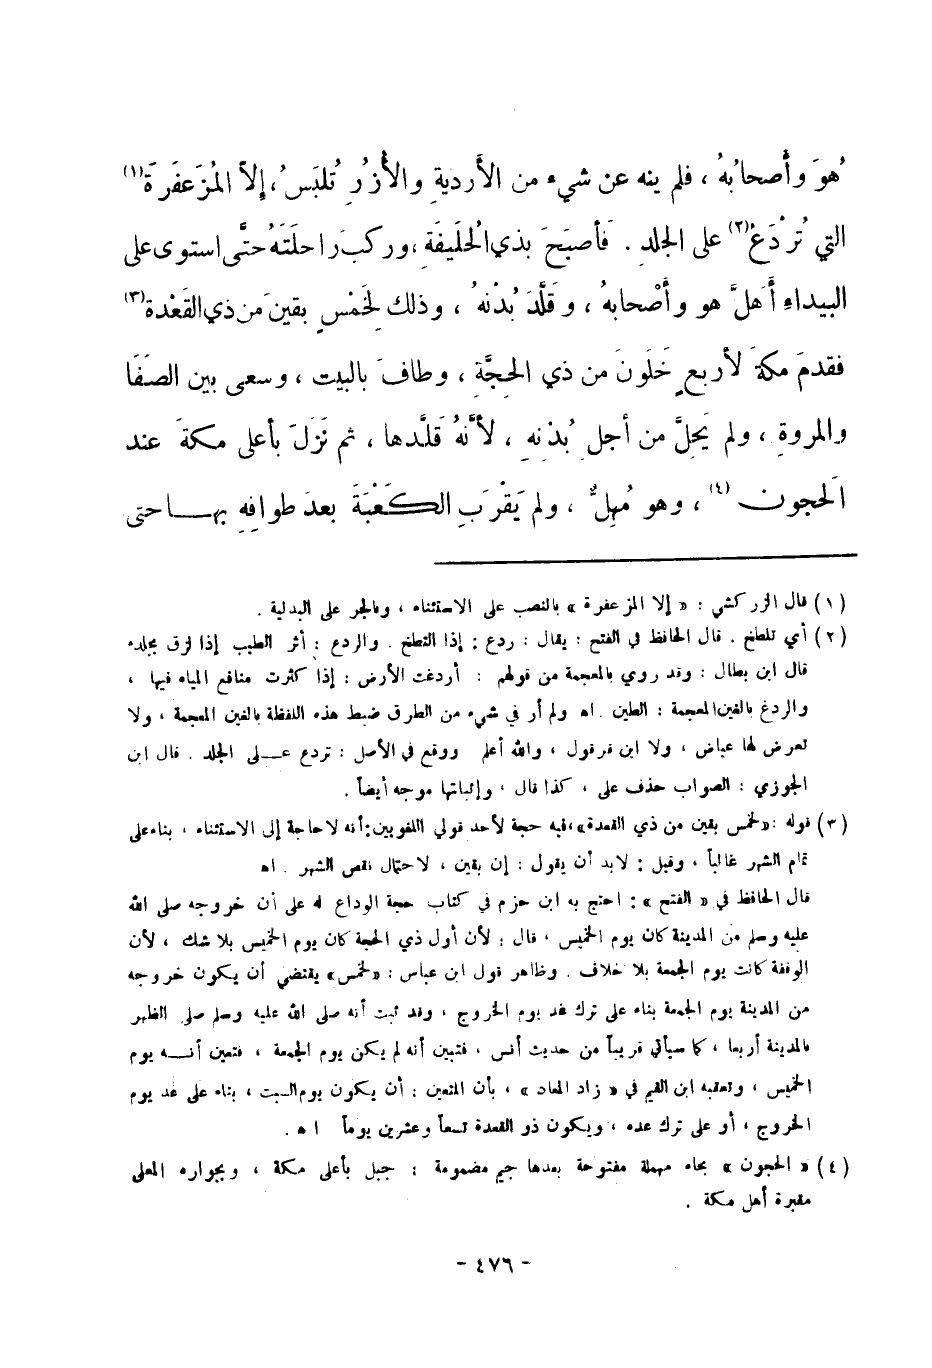 هُوَ وأَصحابُهُ ، فلم ينه عن شيء من الأَرديةِ والأُزُرِ تُلبَسُ ، إلاّ المُزَعفَرَةَ (١)
التي تُرْدَعُ (٢) على الجلدِ . فَأصبَحَ بذي الحُلَيفَةِ ، وركبَ راحلَتَهُ حتَّى استوى على
البيداءِ أَهلَّ هو وأَصْحابهُ ، وقَلَّدَ بُدْنهُ ، وذلك لِخَمْسٍ بقينَ من ذي القَعْدة (٣)
فقدمَ مكةَ لأربعٍ خَلَونَ من ذي الحِجَّةِ ، وطافَ بالبيت ، وسعى بين الصَفَا
والمروةِ ، ولم يَحِلَّ من أجلِ بُدْنِهِ ، لأَنَّهُ قلَّدها ، ثم نَزَلَ بأعلى مكةَ عند
الَحجون (٤) ، وهو مُهِلٌّ ، ولم يَقْرَبِ الكَعْبَةَ بعدَ طوافِهِ بهـا حتى
(١) قال الزركشي : « إلا المزعفرة » بالنصب على الاستثناء ، وبالجر على البدلية .
(٢) أي تلطخ . قال الحافظ في الفتح : يقال : ردع : إذا التطخ . والردع : أثر الطيب إذا لزق بجلده
قال ابن بطال : وقد روي بالمعجمة من قولهم : أردغت الأرض : إذا كثرت مناقع المياه فيها ،
والردغ بالغين المعجمة : الطين . اه ولم أر في شيء من الطرق ضبط هذه اللفظة بالغين المعجمة ، ولا
تعرض لها عياض ، ولا ابن قرقول ، والله أعلم ووقع في الأصل : تردع عـلى الجلد . قال ابن
الجوزي : الصواب حذف على ، كذا قال ، وإثباتها موجه أيضاً .
(٣) قوله : «لخمس بقين من ذي القعدة» ، فيه حجة لأحد قولي اللغويين : أنه لا حاجة إلى الاستثناء ، بناء على
تمام الشهر غالباً ، وقيل : لابد أن يقول : إن بقين ، لاحتمال نقص الشهر . اه
قال الحافظ في « الفتح » : احتج به ابن حزم في كتاب حجة الوداع له على أن خروجه صلى الله
عليه وسلم من المدينة كان يوم الخميس ، قال : لأن أول ذي الحجة كان يوم الخميس بلا شك ، لأن
الوقفة كانت يوم الجمعة بلا خلاف . وظاهر قول ابن عباس : «لخمس» يقتضي أن يكون خروجه
من المدينة يوم الجمعة بناء على ترك عد يوم الخروج ، وقد ثبت أنه صلى الله عليه وسلم صلى الظهر
بالمدينة أربعا ، كما سيأتي قريباً من حديث أنس ، فتبين أنه لم يكن يوم الجمعة ، فتعين أنـه يوم
الخميس ، وتعقبه ابن القيم في « زاد المعاد » ، بأن المتعين : أن يكون يوم السبت ، بناء على عد يوم
الخروج ، أو على ترك عده ، ويكون ذو القعدة تسعاً وعشرين يوماً ا ه .
(٤) « الحجون » بحاء مهملة مفتوحة بعدها جيم مضمومة : جبل بأعلى مكة ، وبجواره المعلى
مقبرة أهل مكة .
- ٤٧٦ -